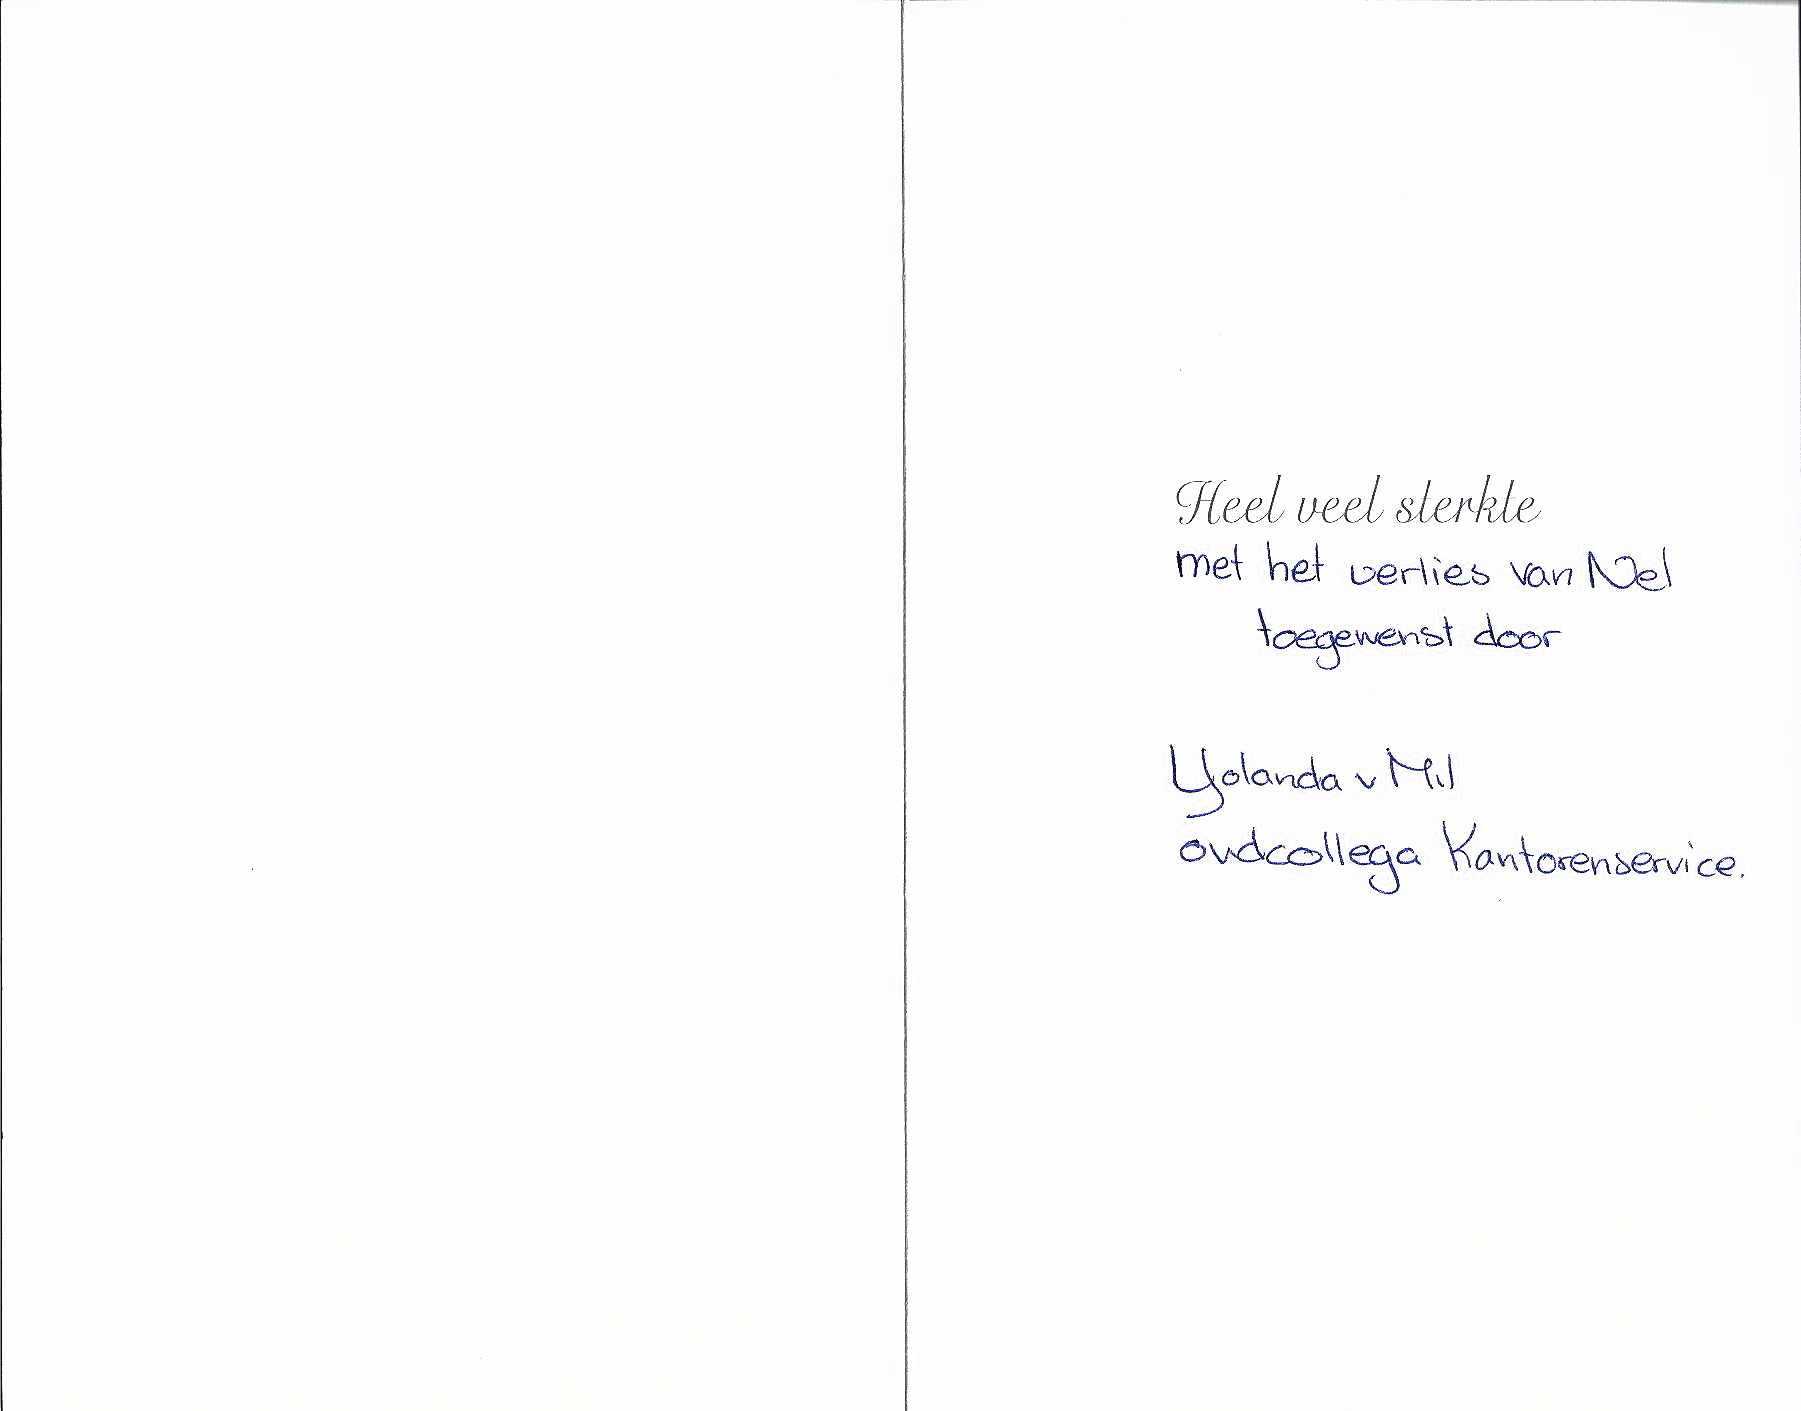 Heel veel sterkte
met het verlies van Nel
toegewenst door
Yolanda v Mil
oudcollega Kantorenservice.